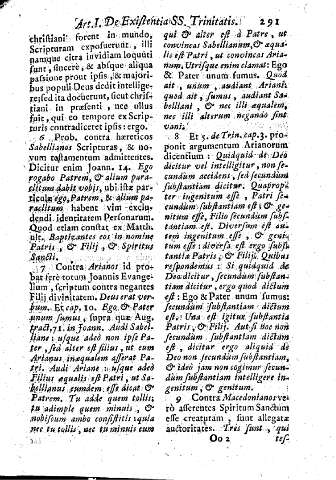 Art. I. De Existentia SS. Trinitatis. 291
christiani forent in mundo,
Scripturam exposuerunt, illi
namque citra invidiam loquuti
sunt, sincerè, & absque aliqua
passione prout ipsis, & majori-
bus populi Deus dedit intellige-
re, sed ita docuerunt, sicut chris-
tiani in præsenti, nec ullus
fuit, qui eo tempore ex Scrip-
turis contradiceret ipsis: ergo.
6 Prob. contra hæreticos
Sabellianos Scripturas, & no-
vum testamentum admittentes.
Dicitur enim Joann. 14. Ego
rogabo Patrem, & alium para-
clitum dabit vobis, ubi istæ par-
ticulæ ego, Patrem, & alium pa-
raclitum habent vim exclu-
dendi identitatem Personarum.
Quod etiam constat ex Matth.
ult. Baptizantes eos in nomine
Patris, & Filij, & Spiritus
Sancti.
7 Contra Arianos id pro-
bat ferè totum Joannis Evange-
lium, scriptum contra negantes
Filij divinitatem. Deus erat ver-
bum. Et cap. 10. Ego, & Pater
unum sumus, supra quæ Aug.
tract. 71. in Joann. Audi Sabel-
liane: usque adeò non ipse Pa-
ter, sed alter est filius, ut cum
Arianus inæqualem asserat Pa-
tri. Audi Ariane: usque adeò
Filius æqualis est Patri, ut Sa-
bellianus eundem esse dicat &
Patrem. Tu adde quod tollis;
tu adimple quem minuis, &
nobiscum ambo consistitis: quia
nec tu tollis, nec tu minuis eum
& qui alter est à Patre, ut
convincas Sabellianum, & æqua-
lis est Patri, ut convincas Aria-
num. Utrisque enim clamat: Ego
& Pater unum sumus. Quod
ait, unum, audiant Ariani:
quod ait, sumus, audiant Sa-
belliani, & nec illi æqualem,
nec illi alterum negando sint
vani.
8 Et 5. de Trin. cap. 3. pro-
ponit argumentum Arianorum
dicentium: Quidquid de Deo
dicitur vel intelligitur, non se-
cundum accidens, sed secundum
substantiam dicitur. Quaprop-
ter ingenitum esse, Patri se-
cundum substantiam est; & ge-
nitum esse, Filio secundum subs-
tantiam est. Diversum est au-
tem ingenitum esse, & geni-
tum esse: diversa est ergo subs-
tantia Patris, & Filij. Quibus
respondemus: Si quidquid de
Deo dicitur, secundum substan-
tiam dicitur, ergo quod dictum
est: Ego & Pater unum sumus:
secundum substantiam dictum
est: Una est igitur substantia
Patris, & Filij. Aut si hoc non
secundum substantiam dictum
est, dicitur ergo aliquid de
Deo non secundum substantiam,
& ideò jam non cogimur secun-
dum substantiam intelligere in-
genitum, & genitum.
9 Contra Macedonianos ve-
rò asserentes Spiritum Sanctum
esse creaturam, sunt allegatæ
auctoritates. Tres sunt, qui
Oo 2 tes-